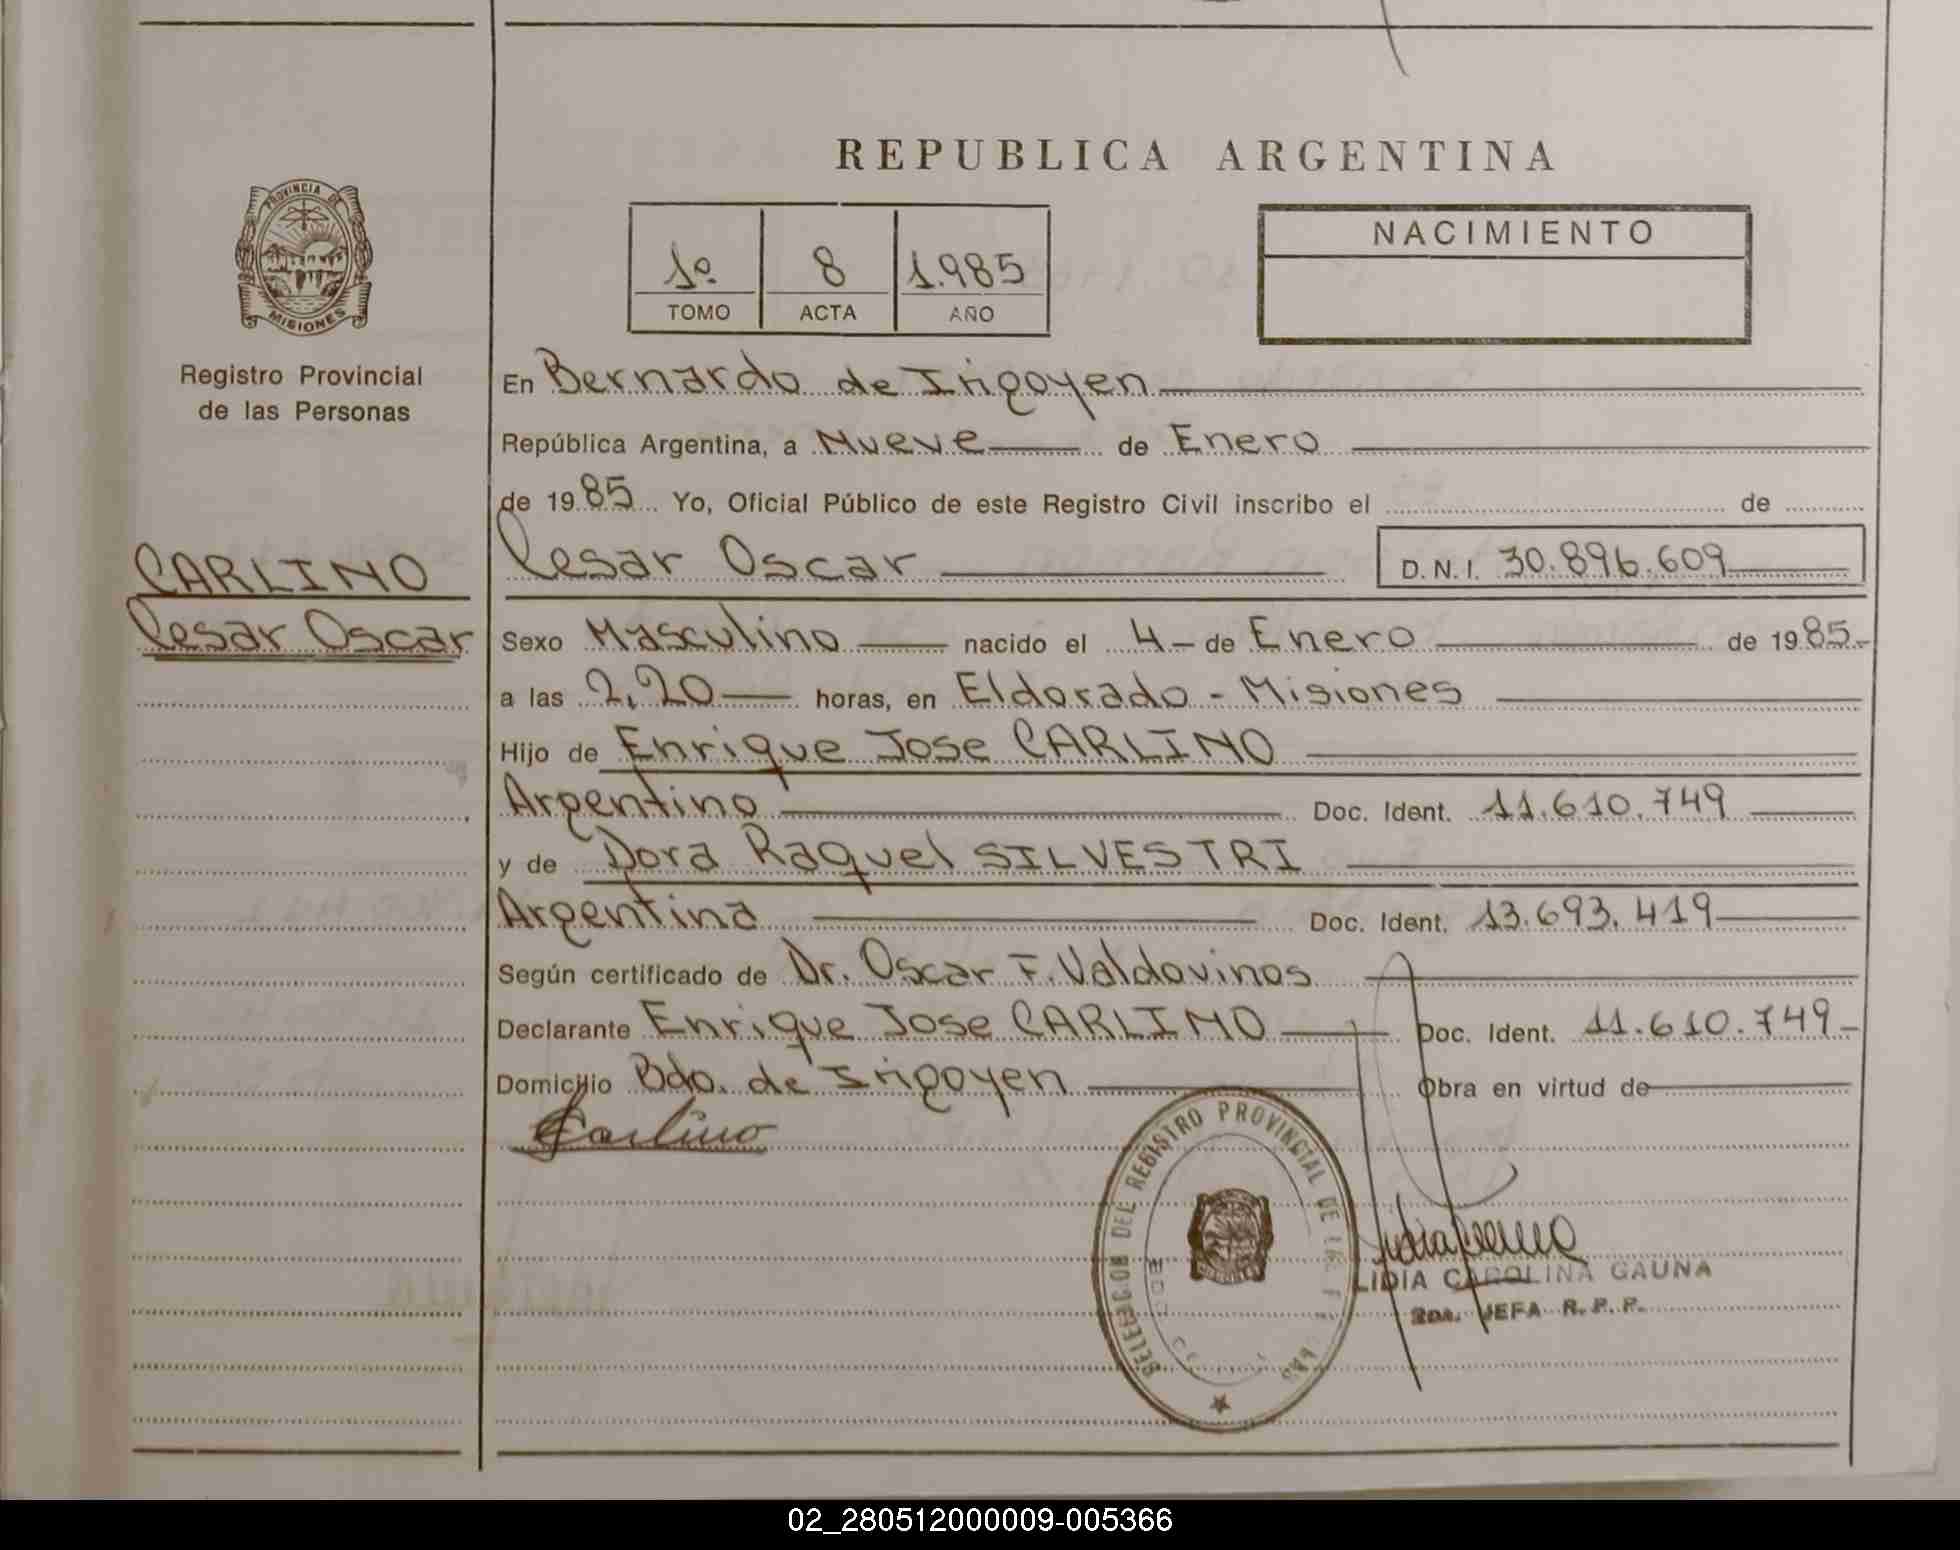 REPUBLICA ARGENTINA
PROVINCIA DE
MISIONES
Registro Provincial
de las Personas
1º 8 1.985
TOMO ACTA AÑO
NACIMIENTO
En Bernardo de Irigoyen
República Argentina, a Nueve de Enero
de 1985 Yo, Oficial Público de este Registro Civil inscribo el de
CARLINO
Cesar Oscar
Cesar Oscar D.N.I. 30.896.609
Sexo Masculino nacido el 4 de Enero de 1985.-
a las 2,20 horas, en Eldorado - Misiones
Hijo de Enrique Jose CARLINO
Argentino Doc. Ident. 11.610.749
y de Dora Raquel SILVESTRI
Argentina Doc. Ident. 13.693.419
Según certificado de Dr. Oscar F. Valdovinos
Declarante Enrique Jose CARLINO Doc. Ident. 11.610.749.-
Domicilio Bdo. de Irigoyen Obra en virtud de
Carlino
DELEGACION DEL REGISTRO PROVINCIAL DE LAS
LIDIA CAROLINA GAUNA
2da. JEFA R. P. P.
02_280512000009-005366